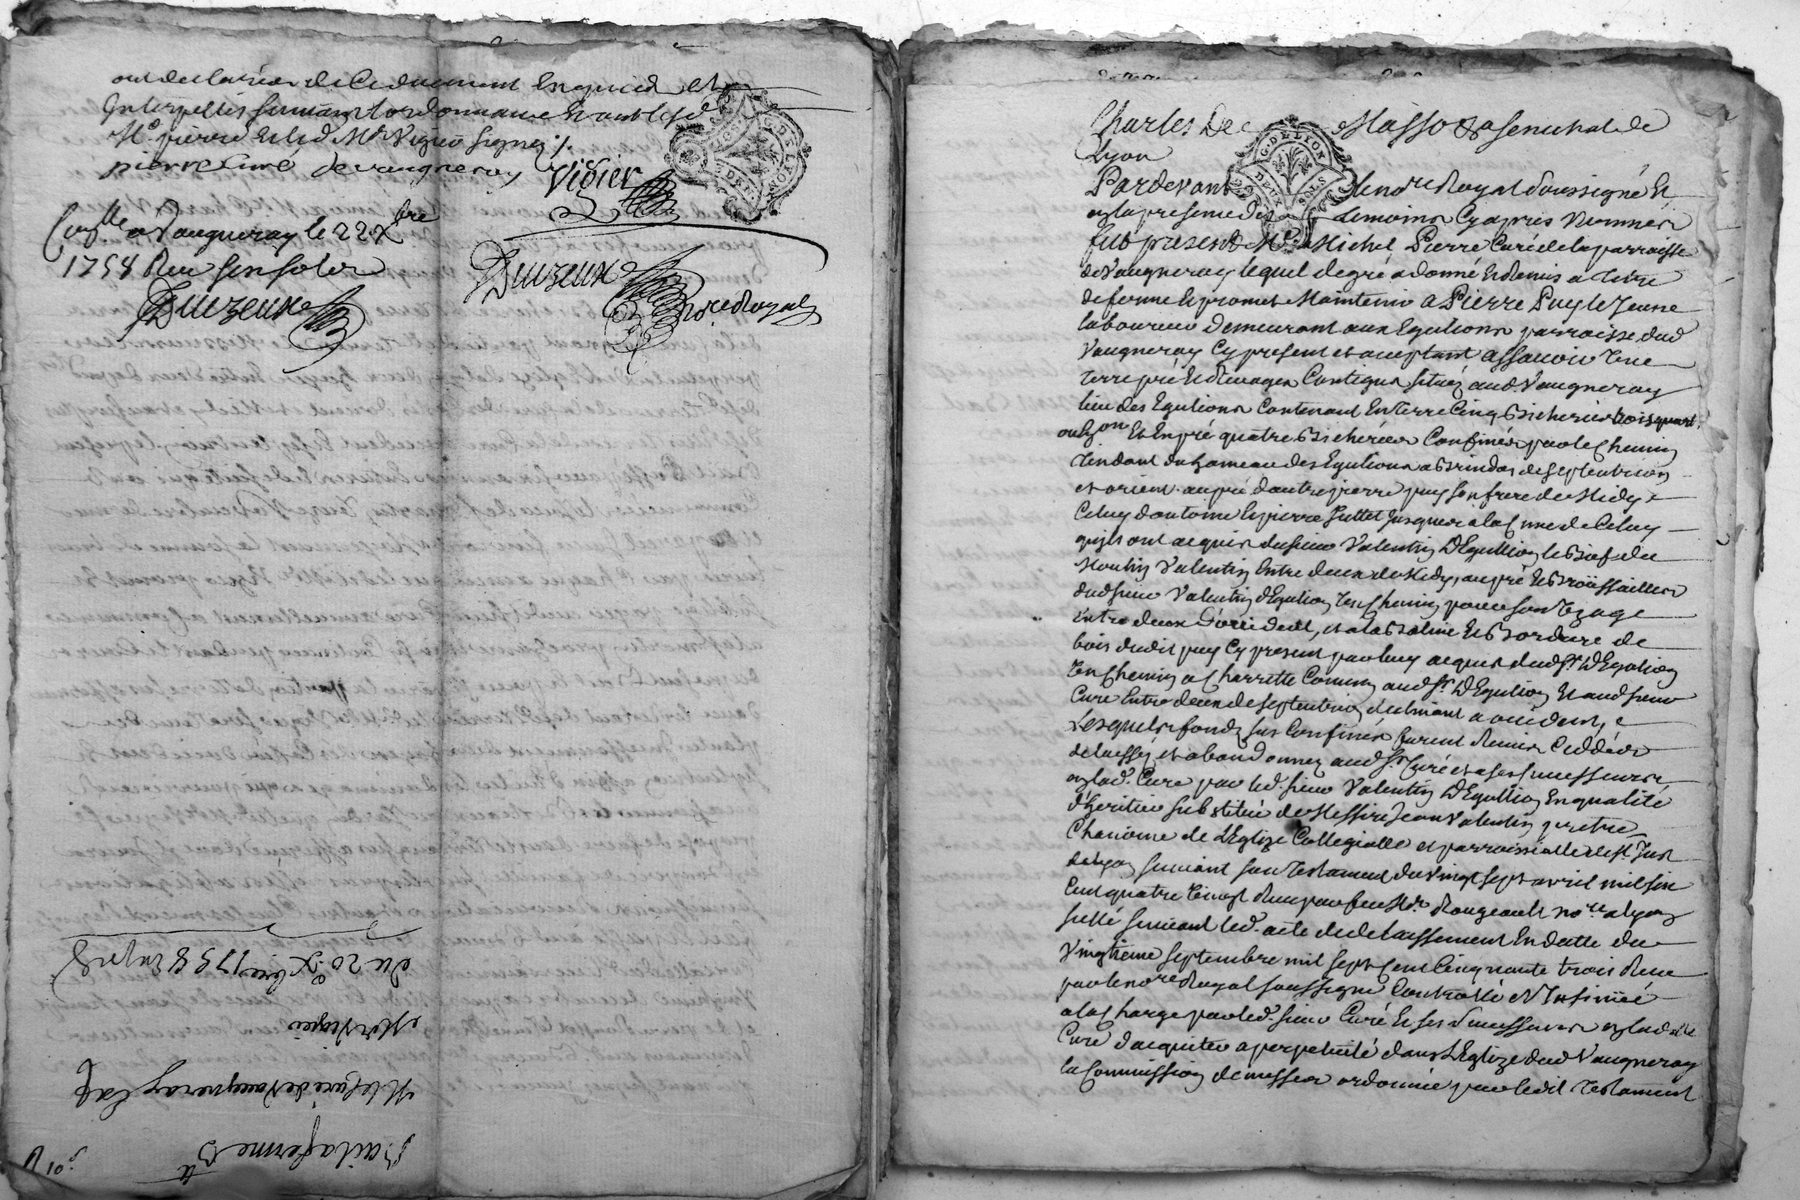 ont declaré de ce duement enquis et
Interpellés suivant l'ordonnance Et ont lesd
Mrs pierre Et led Mr Vigier signé ./.
pierre Curé de vaugneray Vigier
Con.lle a Vaugneray le 22 Xbre
1758 Reu six solz
Duizeux
Duizeux
No.re Royal
G. DE LYON
DEUX SOLS
du 20e Xbre 1758
Mr Vigier
Mr le Curé de Vaugneray
Bail a ferme
Charles De Masso senechal de
Lyon
Pardevant le no.re Royal soussigné Et
en la presence des temoins Cy apres Nommés
fut present Mre Michel Pierre Curé de la parroisse
de Vaugneray lequel de gré a donné Et Remis a Titre
de ferme Et promet Maintenir a Pierre Puy le Jeune
laboureur Demeurant aux Egulions parroisse dud
Vaugneray Cy present et acceptant assavoir Une
terre pré Et Rivages Contigus situéz aud Vaugneray
lieu des Egulions Contenant En Terre Cinq Bicherées trois quart
ou Environ Et En pré quatre Bicherées Confinés par le Chemin
Tendant du hameau des Egulions a Brindas de septentrion
et orient au pré d'autre pierre puy son frere de Midy
Celuy d'antoine Et pierre jusques a la Cime de Celuy
qu'ils ont acquis du sieur Valentin D'Egullion le Bief du
Moulin Valentin Entre deux de Midy, au pré Et Broussailles
dud sieur Valentin d'Egulion Un Chemin pour son Uzage
Entre deux D'occident, et a la Et Bordure de
bois dudit puy Cy present par luy acquis dud Sr D'Egulion
Un Chemin a Charrette Comun aud Sr D'Egulion Et aud sieur
Curé Entre deux de septentrion declinant a occident,
Lesquels fondz sus Confinés furent Remis Ceddés
delaissés et abandonnez aud Sr Curé et a ses successeurs
en lad. Cure par led. sieur Valentin D'Egullion En qualité
d'heritier substitué de Messire Jean Valentin pretre
Chanoine de L'Eglize Collegialle et parroissialle de St Just
de Lyon suivant son Testament du Vingt sept avril mil six
Cent quatre Vingt Reçu par feu Me Rougeault no.re a Lyon
suivant led. acte de delaissement En datte du
Vingtieme septembre mil sept Cent Cinquante trois Reçu
par le no.re Royal soussigné Controllé et Insinué
a la Charge par led. sieur Curé Et ses successeurs en lad
Cure d'acquiter a perpetuité dans L'Eglize dud Vaugneray
la Commission de messes ordonnée par ledit Testament
G. DE LYON
DEUX SOLS